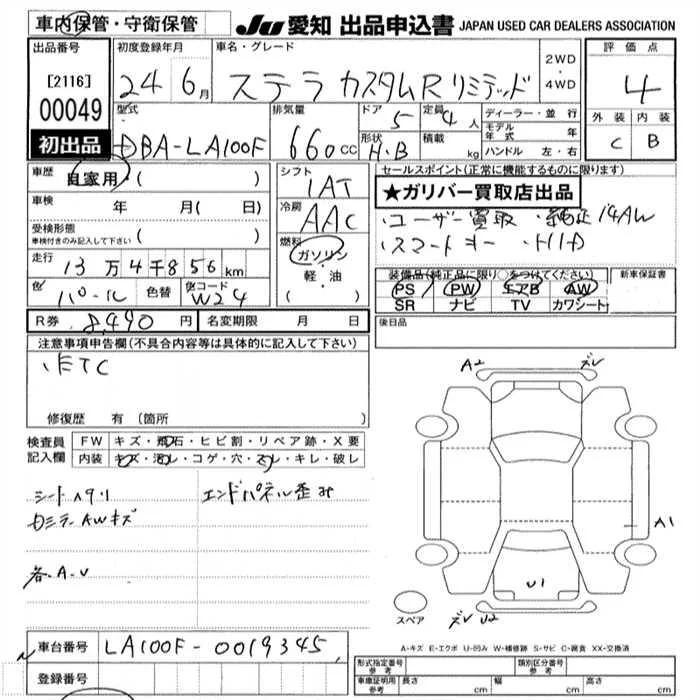 車内保管・守衛保管
JU 愛知 出品申込書 JAPAN USED CAR DEALERS ASSOCIATION
出品番号 [2116] 00049 初出品
初度登録年月 24 6月
車名・グレード ステラ カスタムR リミテッド
2WD・4WD
評価点 4
外装 C 内装 B
型式 DBA-LA100F
排気量 660cc
ドア 5 形状 H.B
定員 4人 積載 kg
ディーラー・並行
モデル年式 年
ハンドル 左・右
車歴 自家用 ( )
シフト 1AT
セールスポイント(正常に機能するものに限ります)
★ガリバー買取店出品
・ユーザー買取 ・純正14AW
・スマートキー ・HID
車検 年 月( 日)
冷房 AAC
受検形態 車検付きのみ記入して下さい ( )
燃料 ガソリン・軽・油
走行 13万4千856km
装備品(純正品に限り○をつけてください) 新車保証書
PS PW エアB AW
SR ナビ TV カワシート
色 パール 色替 色コード W24
R券 8,490円 名変期限 月 日
後日品
注意事項申告欄(不具合内容等は具体的に記入して下さい)
・ETC
修復歴 有 (箇所 )
検査員記入欄
FW キズ・飛石・ヒビ割・リペア跡・X要
内装 キズ・汚レ・コゲ・穴・スレ・キレ・破レ
シートヘタリ エンドパネル歪み
ドミラーAWキズ
各・A・U
A2 ズレ
A1
U1
ズレ U2
スペア
A-キズ E-エクボ U-凹み W-補修跡 S-サビ C-腐食 XX-交換済
車台番号 LA100F-0019345
登録番号
形式指定番号 参考 類別区分番号 参考
車庫証明用 参考 長さ cm 幅 cm 高さ cm